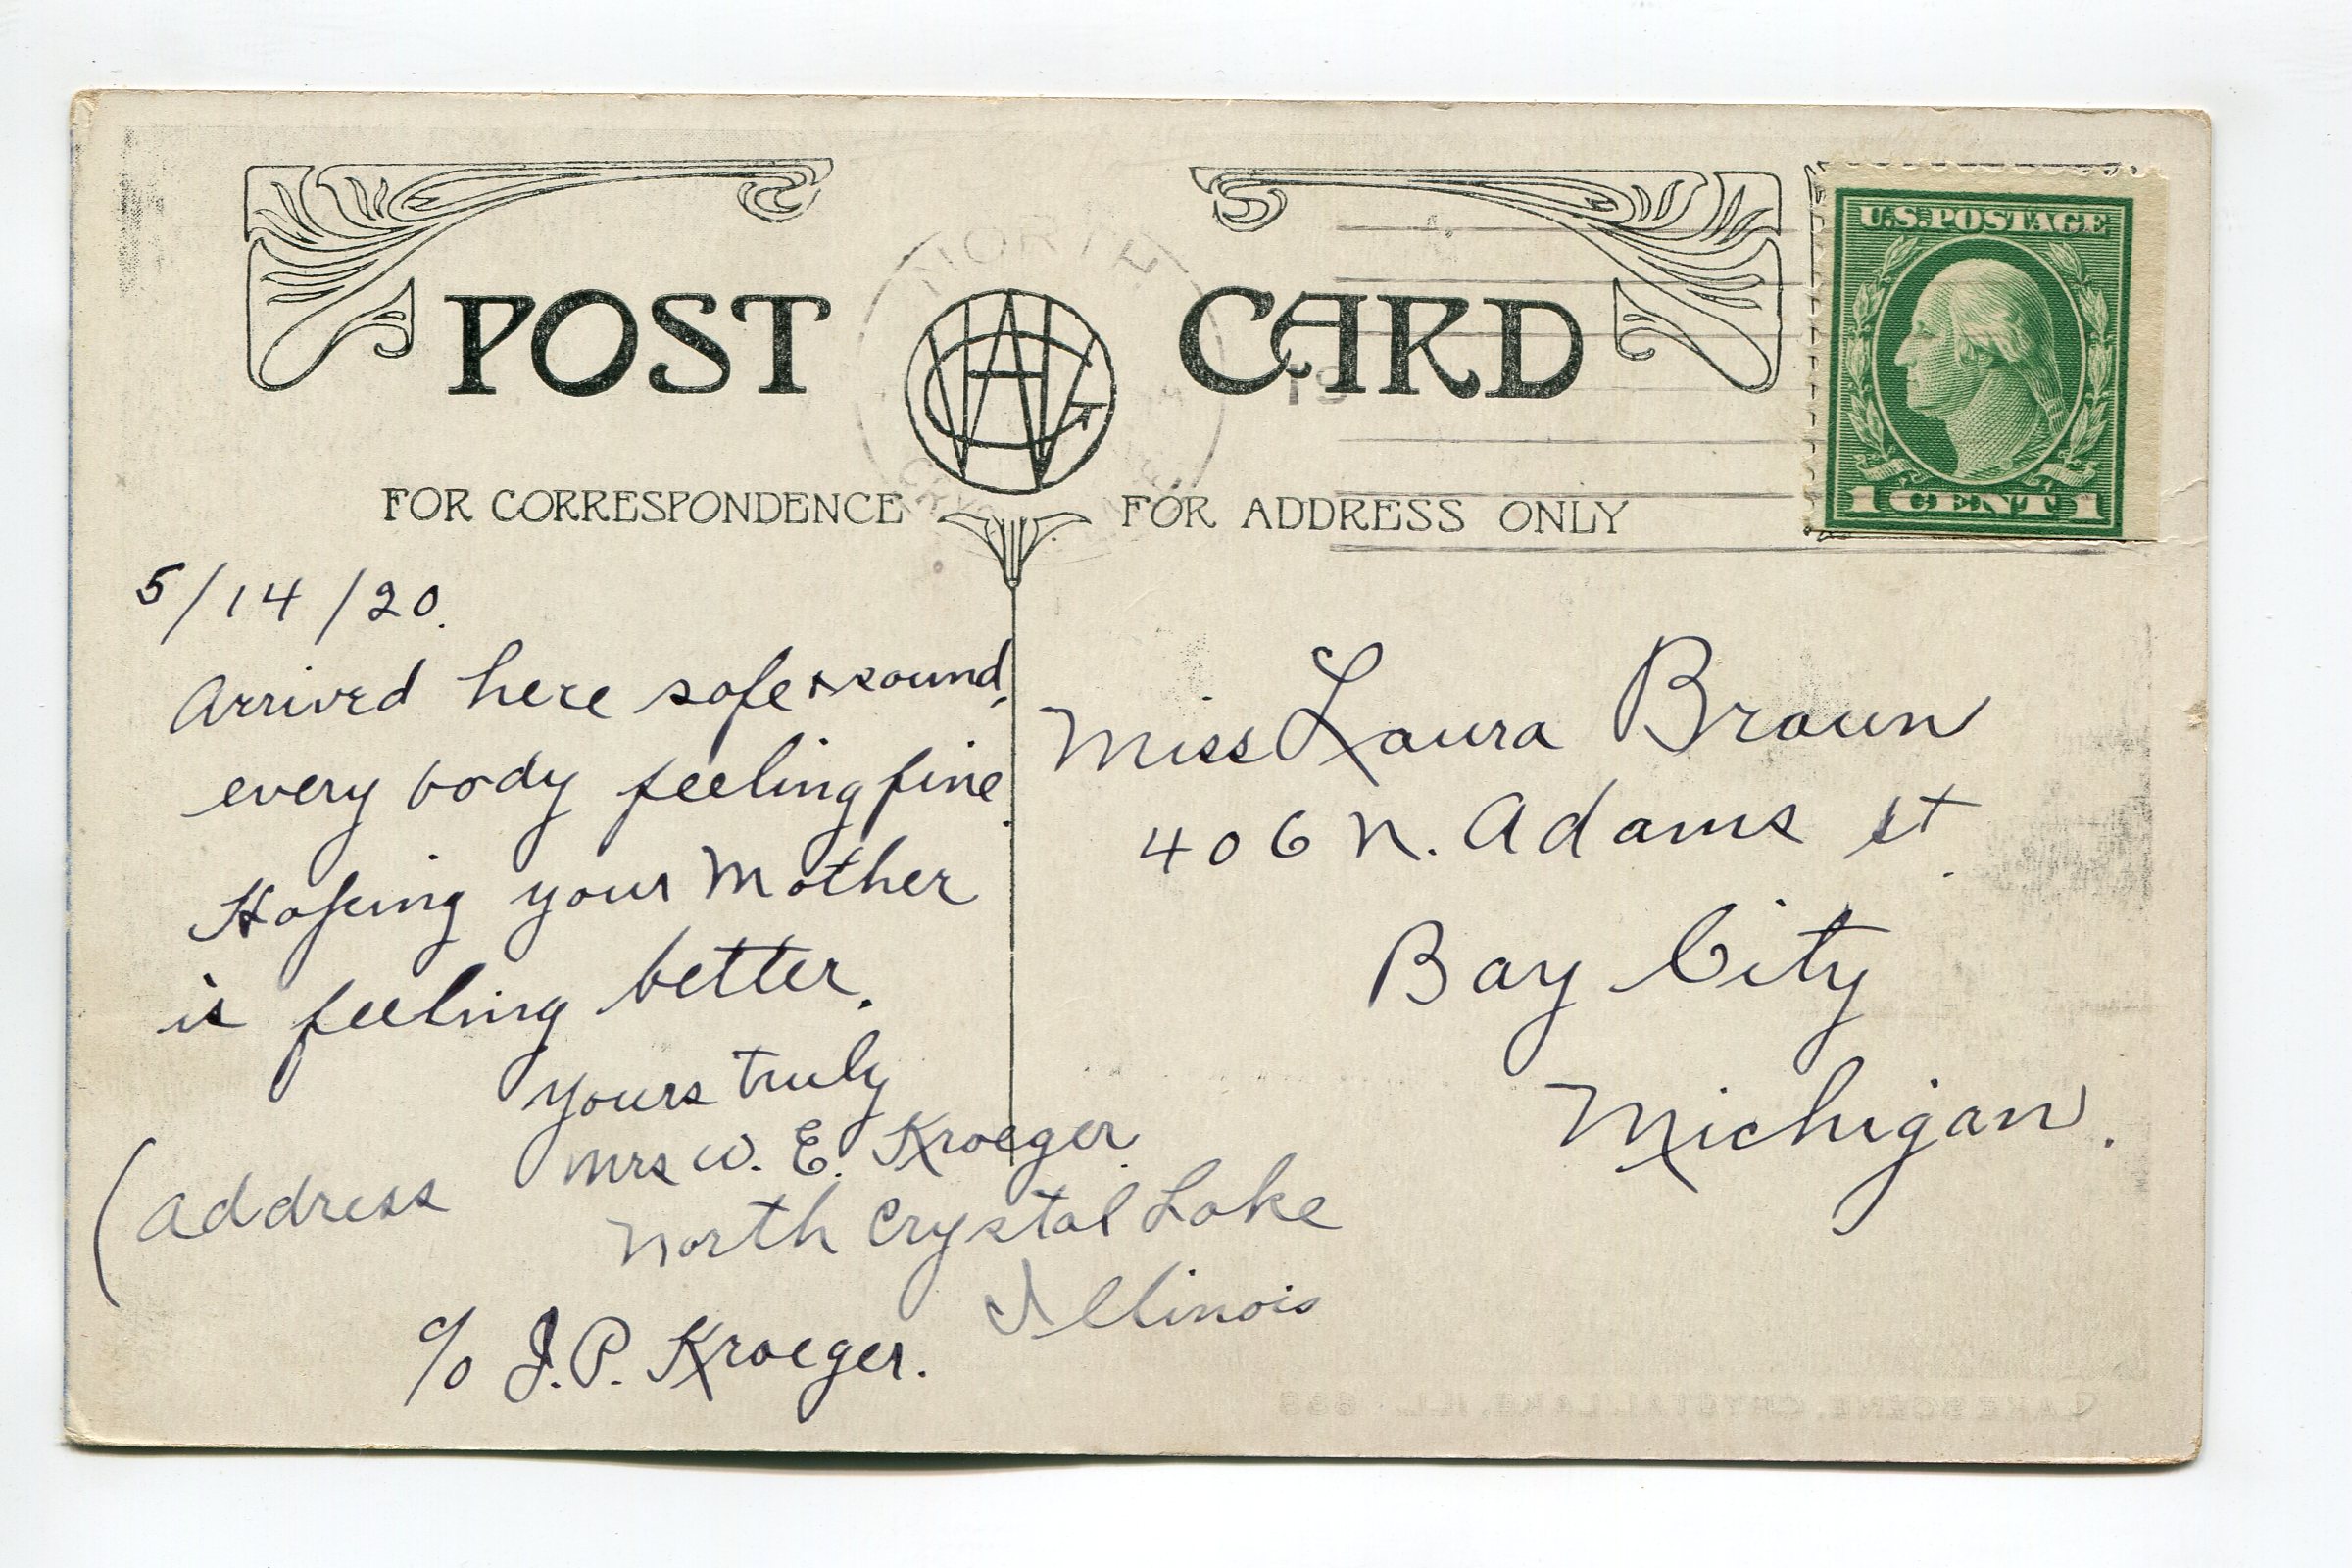 POST CARD
NORTH
19
FOR CORRESPONDENCE
FOR ADDRESS ONLY
U.S. POSTAGE
1 CENT 1
5/14/20.
Arrived here safe & sound,
every body feeling fine.
Hoping your Mother
is feeling better.
Yours truly
Mrs W. E. Kroeger.
(Address
North Crystal Lake
Illinois
c/o J. P. Kroeger.
Miss Laura Braun
406 N. Adams st.
Bay City
Michigan.
LAKE SCENE, CRYSTAL LAKE, ILL.